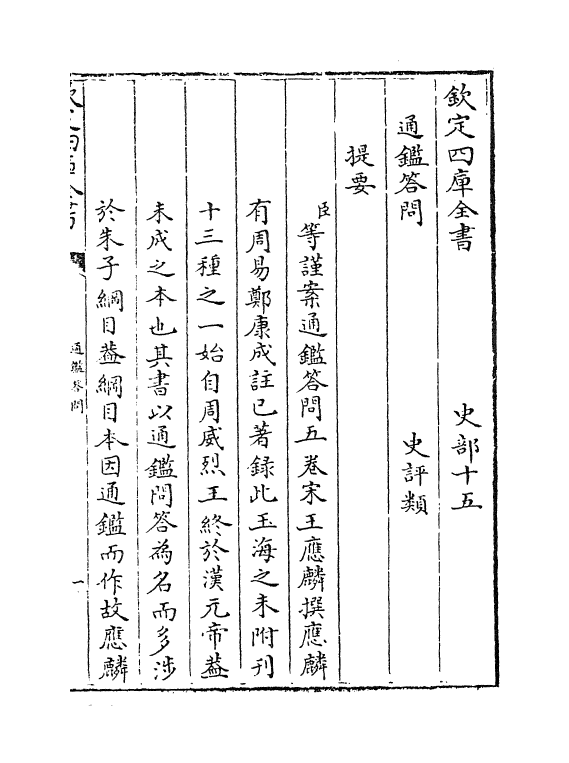 欽定四庫全書　史部十五
通鑑答問　史評類
提要
臣等謹案通鑑答問五卷宋王應麟撰應麟
有周易鄭康成註已著録此玉海之末附刊
十三種之一始自周威烈王終於漢元帝葢
未成之本也其書以通鑑問答為名而多渉
於朱子綱目葢綱目本因通鑑而作故應麟
欽定四庫全書
通鑑答問
一